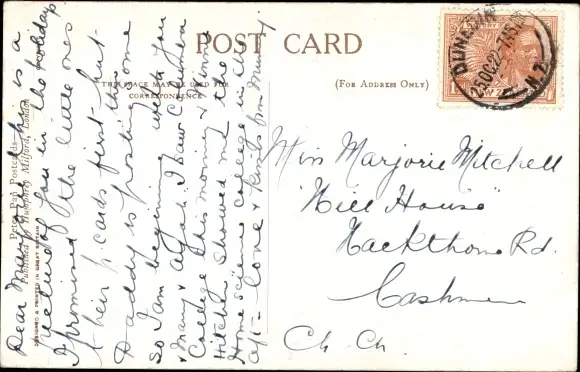 POST CARD
THIS SPACE MAY BE USED FOR
CORRESPONDENCE
(FOR ADDRESS ONLY)
DUNEDIN
23OC22-1.55PM
N.Z.
Peter Pan Postcards
Published by Humphrey Milford, London
DESIGNED & PRINTED IN GREAT BRITAIN
Dear Marjorie this is a
picture of you in the holidays
I promised the little ones
their p. cards first - but
Daddy is posting this some
so I am beginning with you
& Mary & Again. I saw Columba
College this morng & Aunt
Hitchen showed me the
Home Science College in the
aft - love & kisses from Mummy
Miss Marjorie Mitchell
"Hill House"
Hackthorne Rd.
Cashmere
Ch. Ch.